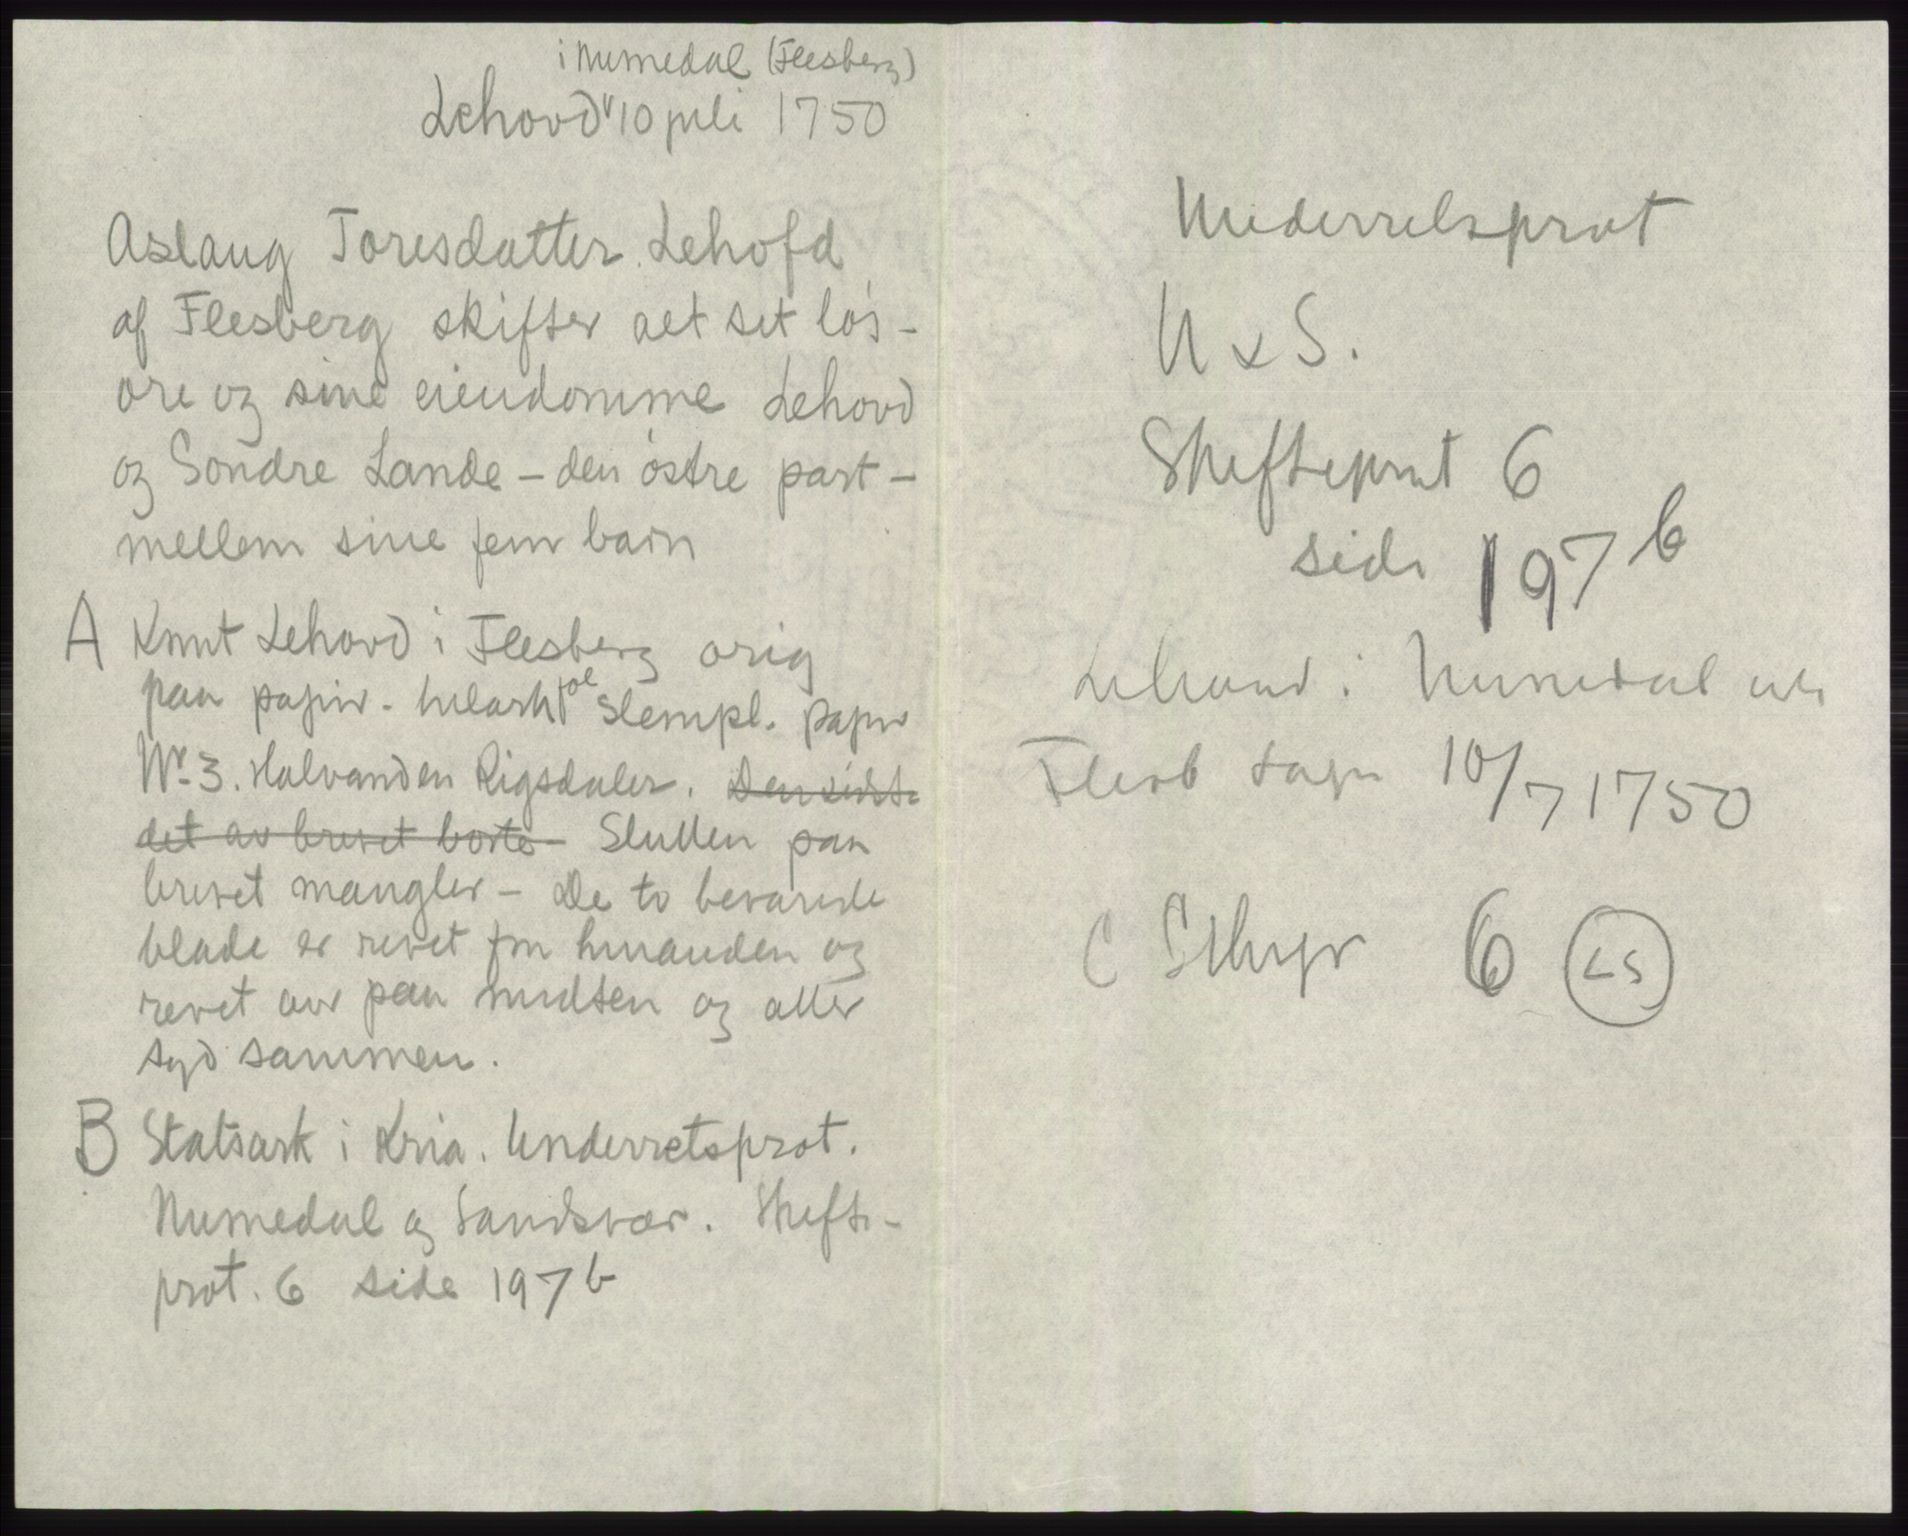 i Numedal (Flesberg)
Lehovd 10 juli 1750
Aslaug Toresdatter Lehofd
af Flesberg skifter alt sit løs-
øre og sine eiendomme Lehovd
og Søndre Lande - den østre part -
mellem sine fem børn
A Knut Lehovd i Flesberg orig
paa papir. helark stempl. papir
Nr. 3. Halvanden Rigsdaler. Den sidste
del av brevet borte Slutten paa
brevet mangler - De to bevarede
blade er revet fra hinanden og
revet av paa midten og atter
syd sammen.
B Statsark i Kria. Underretsprot.
Numedal og Sandsvær. Skifte-
prot. 6 side 197 b
Underretsprot
N & S.
Skifteprot 6
side 197 b
Lehovd i Numedal
Flesb 10/7 1750
C 6 LS